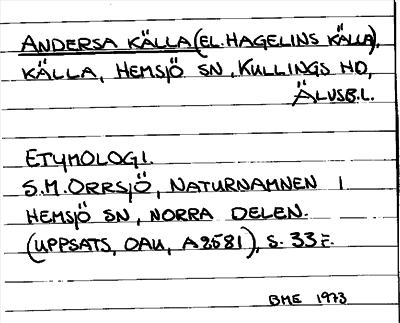 ANDERSA KÄLLA (EL. HAGELINS KÄLLA),
KÄLLA, HEMSJÖ SN, KULLINGS HD,
ÄLVSB.L.
ETYMOLOGI.
S.M. ORRSJÖ, NATURNAMNEN I
HEMSJÖ SN, NORRA DELEN.
(UPPSATS, OAU, A2581), S. 33 F.
BME 1973